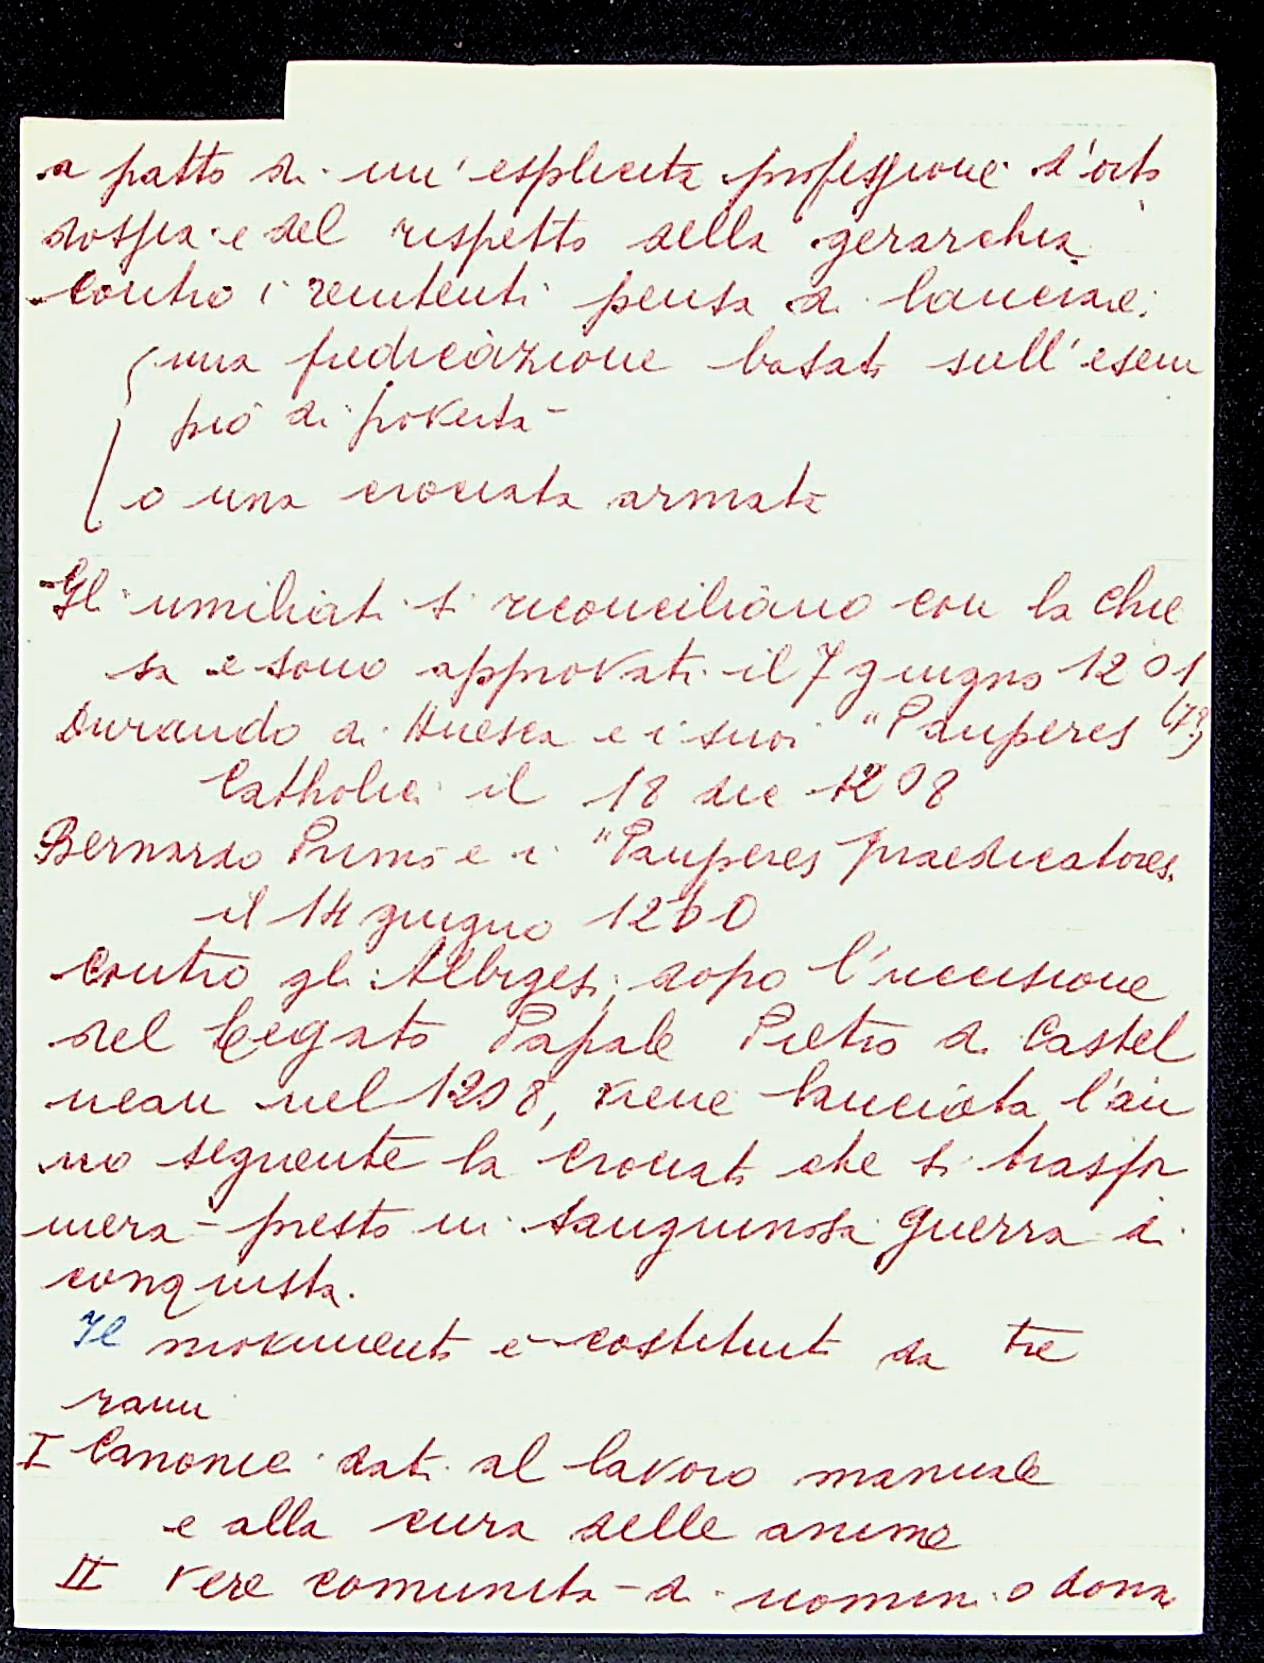 a patto di un'esplicita professione d'orto
dossia e del rispetto della gerarchia
Contro i renitenti pensa di lanciare:
una predicazione basata sull'esem
pio di povertà
o una crociata armata
Gli umiliati si riconciliano con la chie
sa e sono approvati il 7 giugno 1201
Durando di Huesca e i suoi "Pauperes
Catholici il 18 dic 1208
Bernardo Primo e i "Pauperes praedicatores"
il 14 giugno 1210
Contro gli Albigesi, dopo l'uccisione
del Legato Papale Pietro di Castel
neau nel 1208, viene lanciata l'an
no seguente la crociata che si trasfor
merà presto in sanguinosa guerra di
conquista.
Il movimento è costituito da tre
rami
I Canonici dati al lavoro manuale
e alla cura delle anime
II Vere comunità di uomini o donne